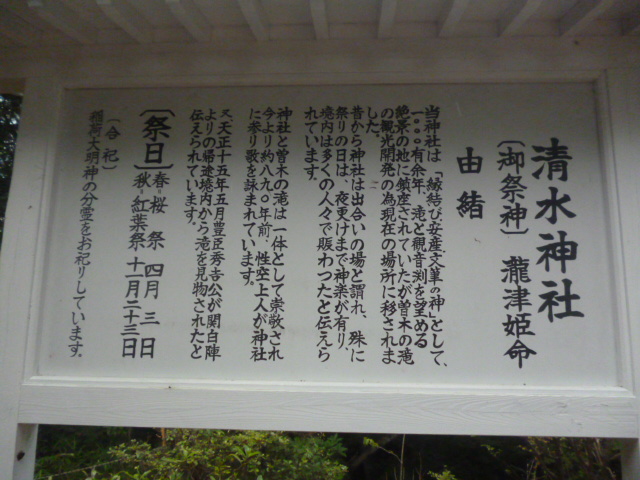 清水神社
〔御祭神〕 瀧津姫命
由結
当神社は「縁結び、安産、文筆の神」として、
一〇〇〇有余年、滝と観音渕を望める
絶景の地に鎮座されていたが曽木の滝
の観光開発の為現在の場所に移されま
した。
昔から神社は出合いの場と謂れ、殊に
祭りの日は、夜更けまで神楽が有り、
境内は多くの人々で賑わつたと伝えら
れています。
神社と曽木の滝は一体として崇敬され
今より約八九〇年前、性空上人が神社
に参り歌を詠まれています。
又天正十五年五月豊臣秀吉公が関白陣
よりの帰途境内から滝を見物されたと
伝えられています。
〔祭日〕 春=桜祭 四月三日
秋=紅葉祭 十一月二十三日
〔合祀〕
稲荷大明神の分霊をお祀りしています。